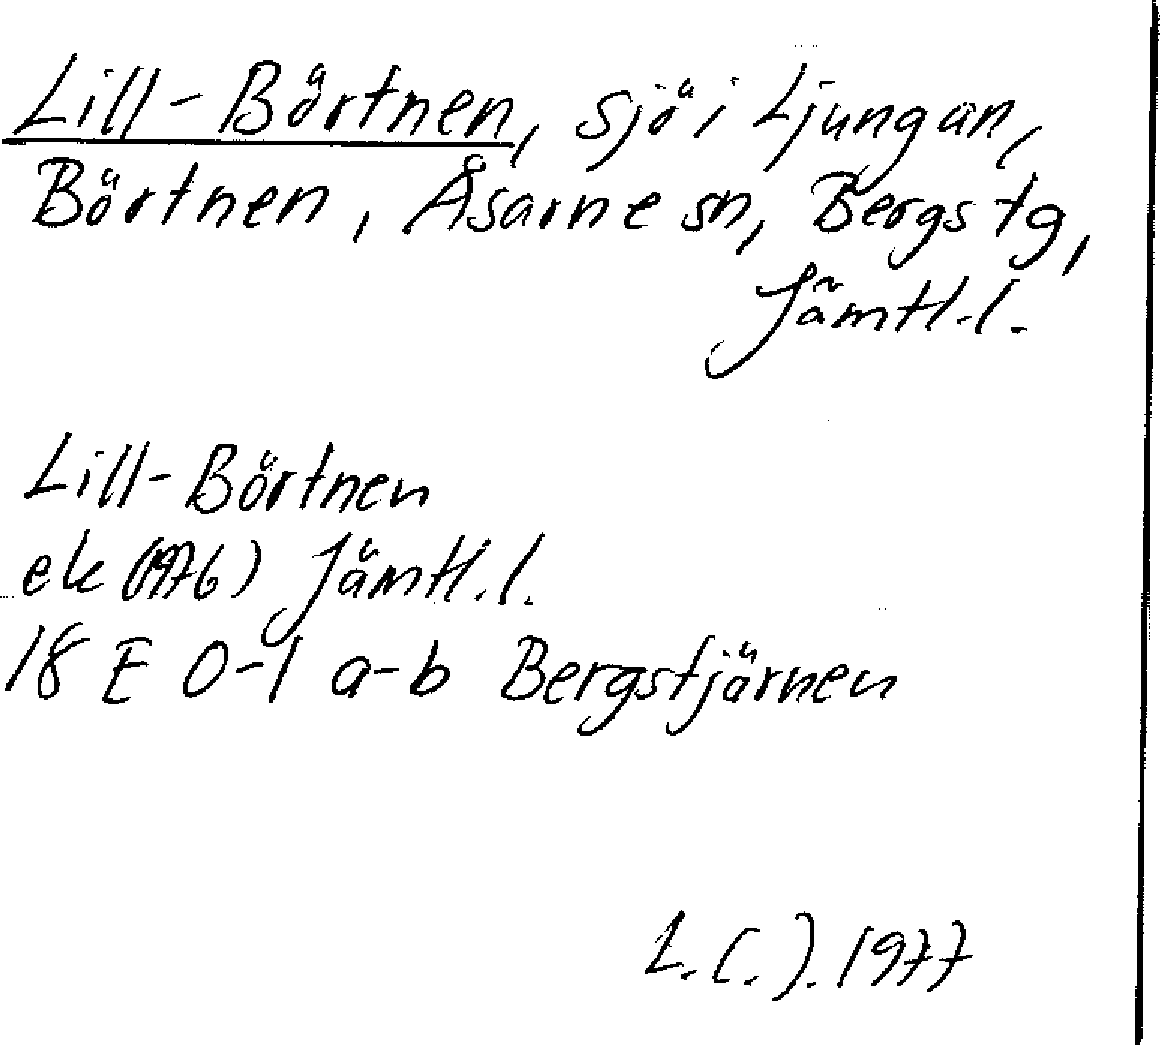 Lill-Börtnen, sjö i Ljungan,
Börtnen, Åsarne sn, Bergs tg,
Jämtl.l.
Lill-Börtnen
ek (1976) Jämtl.l.
18 E 0-1 a-b Bergstjärnen
L.(.).1977